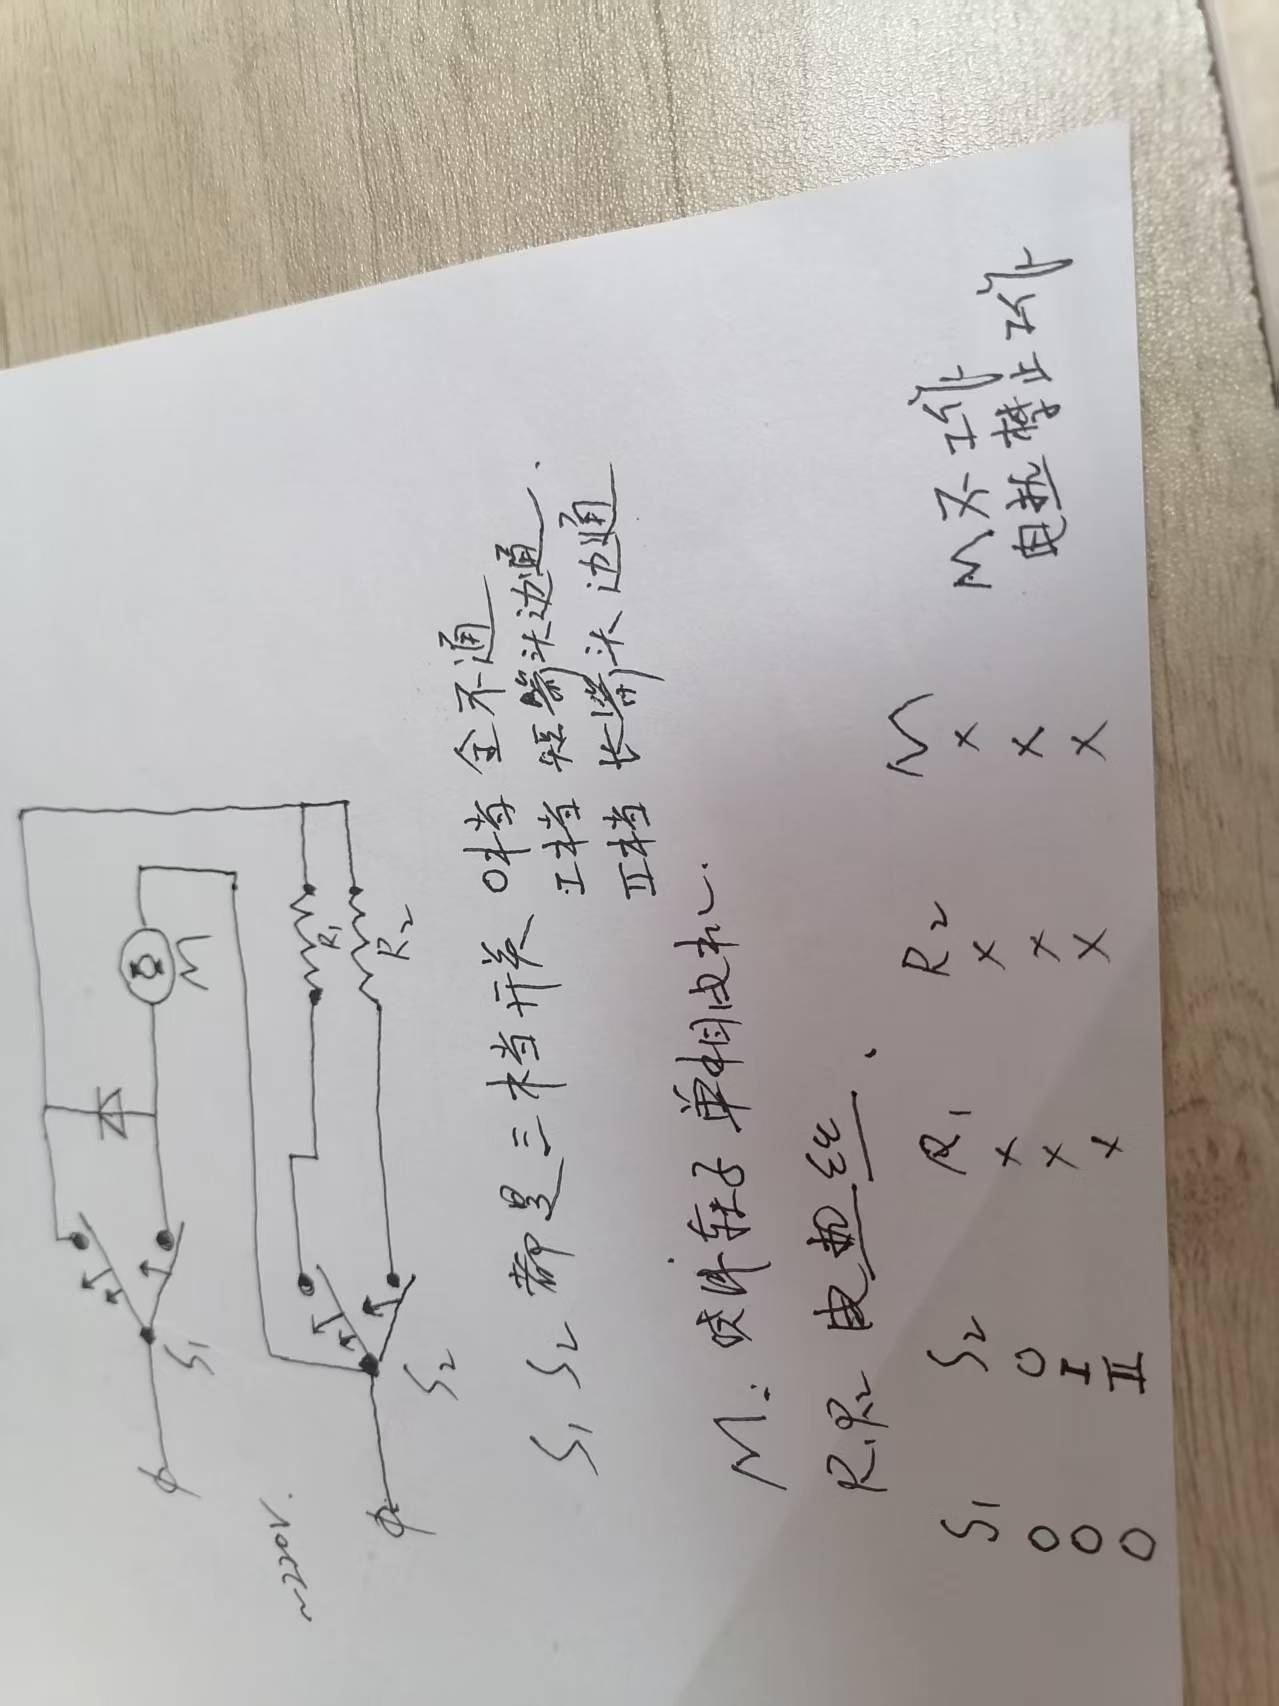 220V
S1
S2
M
R1
R2
S1 S2 都是三档开关 0档 全不通
I档 短箭头边通.
II档 长箭头边通
M: 转子 单相电机.
R1R2 电热丝.
S1 S2 R1 R2 M
0 0 × × × M不工作
0 I × × × 电热停止工作
0 II × × ×